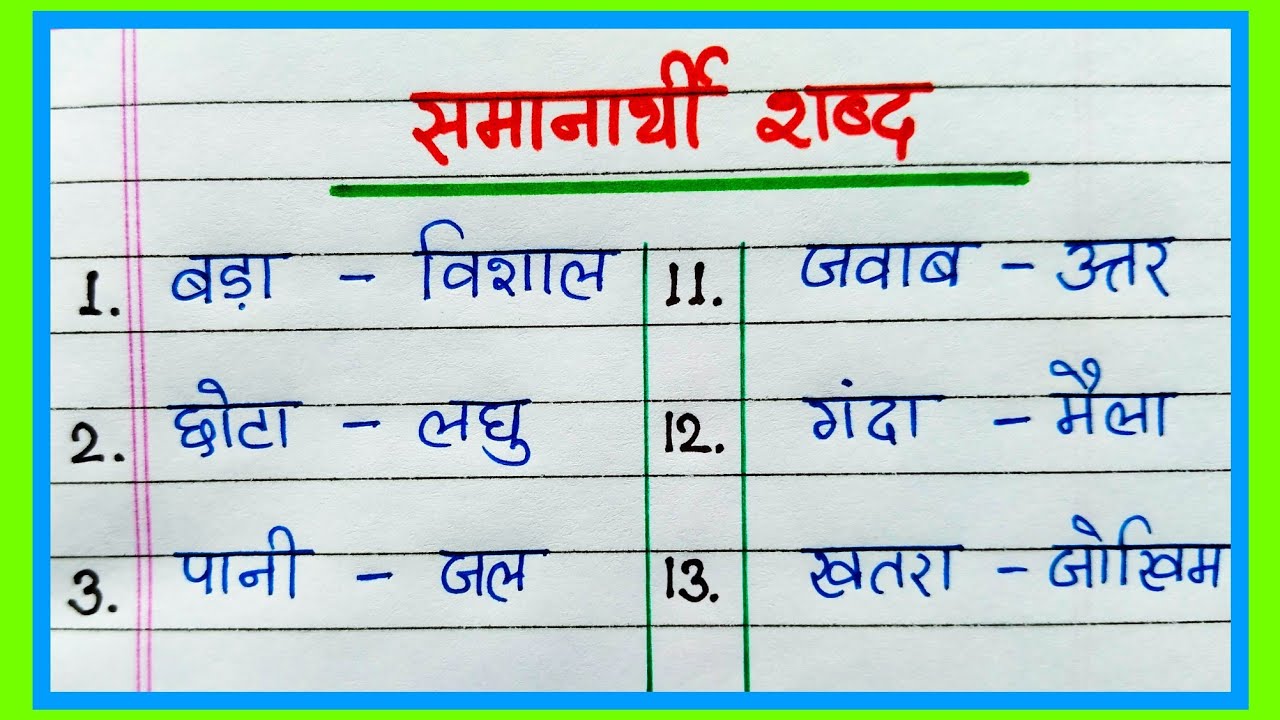 समानार्थी शब्द
1. बड़ा - विशाल 11. जवाब - उत्तर
2. छोटा - लघु 12. गंदा - मैला
3. पानी - जल 13. खतरा - जोखिम